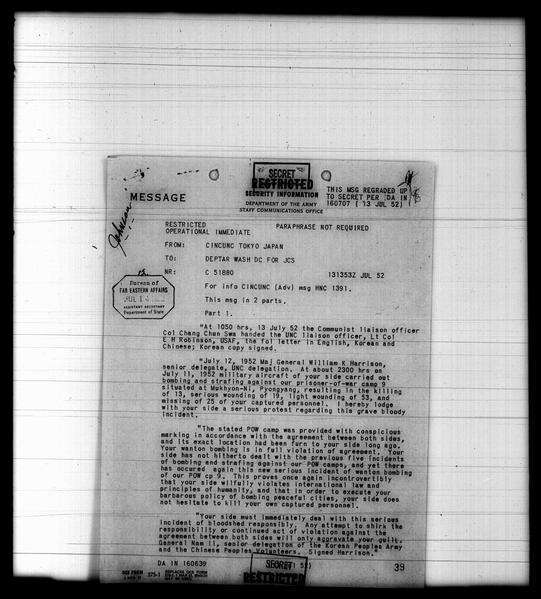 SECRET
RESTRICTED
SECURITY INFORMATION
DEPARTMENT OF THE ARMY
STAFF COMMUNICATIONS OFFICE
MESSAGE
THIS MSG REGRADED UP
TO SECRET PER DA IN
160707 (13 JUL 52)
Johnson
RESTRICTED
OPERATIONAL IMMEDIATE
PARAPHRASE NOT REQUIRED
FROM: CINCUNC TOKYO JAPAN
TO: DEPTAR WASH DC FOR JCS
NR: C 51880 131353Z JUL 52
Bureau of
FAR EASTERN AFFAIRS
ASSISTANT SECRETARY
Department of State
For info CINCUNC (Adv) msg HNC 1391.
This msg in 2 parts.
Part 1.
"At 1050 hrs, 13 July 52 the Communist liaison officer
Col Chang Chun Swa handed the UNC liaison officer, Lt Col
E H Robinson, USAF, the fol letter in English, Korean and
Chinese; Korean copy signed.
"July 12, 1952 Maj General William K Harrison,
senior delegate, UNC delegation. At about 2300 hrs on
July 11, 1952 military aircraft of your side carried out
bombing and strafing against our prisoner-of-war camp 9
situated at Mukhyon-Ni, Pyongyang, resulting in the killing
of 13, serious wounding of 19, light wounding of 53, and
missing of 25 of your captured personnel. I hereby lodge
with your side a serious protest regarding this grave bloody
incident.
"The stated POW camp was provided with conspicious
marking in accordance with the agreement between both sides,
and its exact location had been furn to your side long ago.
Your wanton bombing is in full violation of agreement. Your
side has not hitherto dealt with the previous five incidents
of bombing and strafing against our POW camps, and yet there
has occured again this new serious incident of wanton bombing
of our POW cp 9. This proves once again incontrovertibly
that your side wilfully violates international law and
principles of humanity, and that in order to execute your
barbarous policy of bombing peaceful cities, your side does
not hesitate to kill your own captured personnel.
"Your side must immediately deal with this serious
incident of bloodshed responsibly. Any attempt to shirk the
responsibility or continued act of violation against the
agreement between both sides will only aggravate your guilt.
General Nam Il, senior delegation of the Korean Peoples Army
and the Chinese Peoples Volunteers. Signed Harrison."
DA IN 160639
SECRET
RESTRICTED
52)
39
375-1